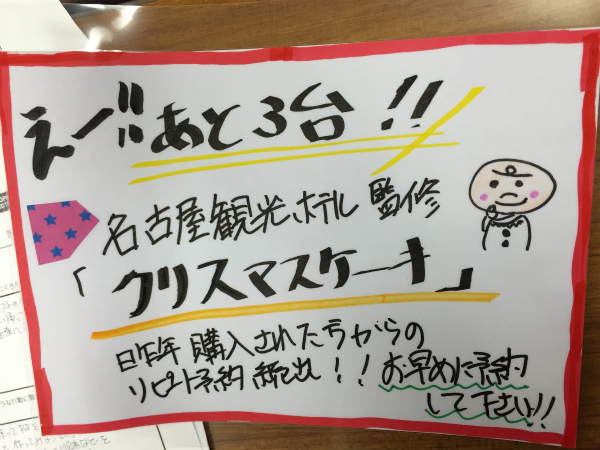 えーっ!!あと3台!!
名古屋観光ホテル 監修
「クリスマスケーキ」
昨年 購入された方からの
リピート予約 続出!! お早めに予約
して下さい!!